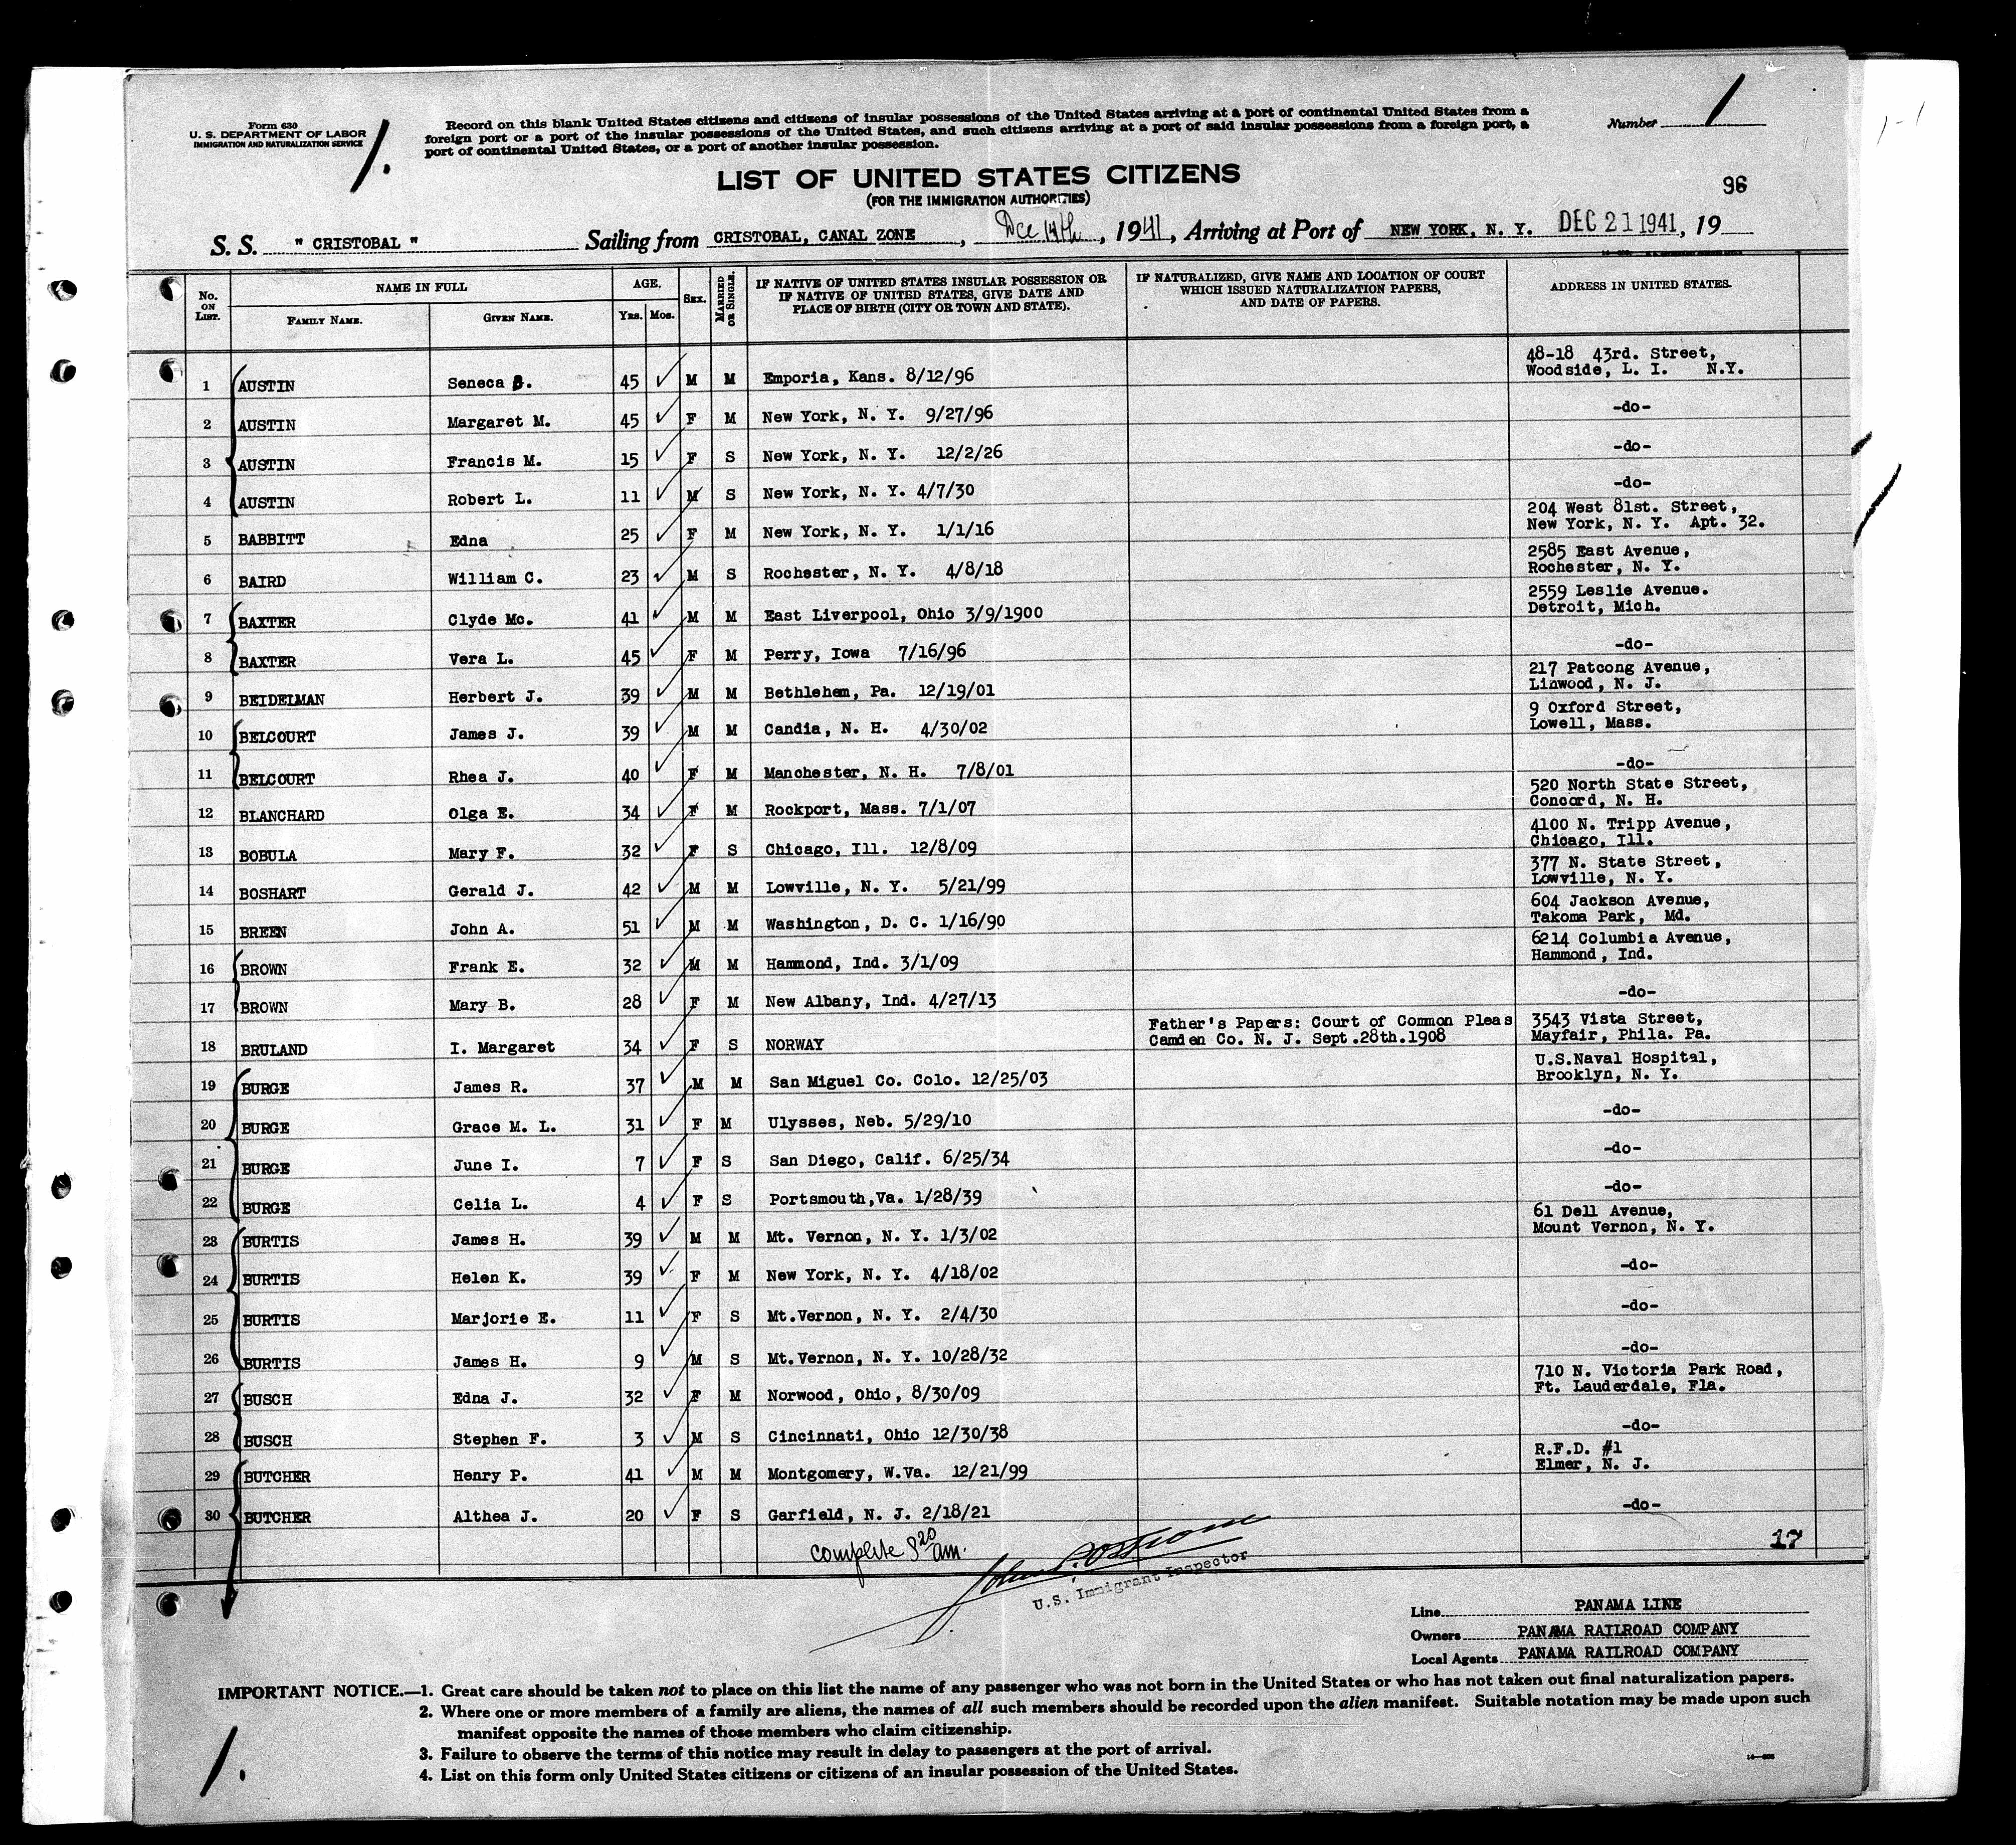 Form 630
U. S. DEPARTMENT OF LABOR
IMMIGRATION AND NATURALIZATION SERVICE
1.
Record on this blank United States citizens and citizens of insular possessions of the United States arriving at a port of continental United States from a
foreign port or a port of the insular possessions of the United States, and such citizens arriving at a port of said insular possessions from a foreign port, a
port of continental United States, or a port of another insular possession.
Number 1
1-1
LIST OF UNITED STATES CITIZENS
(FOR THE IMMIGRATION AUTHORITIES)
96
S. S. " CRISTOBAL " Sailing from CRISTOBAL, CANAL ZONE, Dec 14th, 1941, Arriving at Port of NEW YORK, N. Y. DEC 21 1941, 19
No. ON LIST. NAME IN FULL FAMILY NAME. GIVEN NAME. AGE. YRS. MOS. SEX. MARRIED OR SINGLE. IF NATIVE OF UNITED STATES INSULAR POSSESSION OR IF NATIVE OF UNITED STATES, GIVE DATE AND PLACE OF BIRTH (CITY OR TOWN AND STATE). IF NATURALIZED, GIVE NAME AND LOCATION OF COURT WHICH ISSUED NATURALIZATION PAPERS, AND DATE OF PAPERS. ADDRESS IN UNITED STATES.
1 AUSTIN Seneca B. 45 ✓ M M Emporia, Kans. 8/12/96 48-18 43rd. Street, Woodside, L. I. N.Y.
2 AUSTIN Margaret M. 45 ✓ F M New York, N. Y. 9/27/96 -do-
3 AUSTIN Francis M. 15 ✓ F S New York, N. Y. 12/2/26 -do-
4 AUSTIN Robert L. 11 ✓ M S New York, N. Y. 4/7/30 -do-
5 BABBITT Edna 25 ✓ F M New York, N. Y. 1/1/16 204 West 81st. Street, New York, N. Y. Apt. 32.
6 BAIRD William C. 23 ✓ M S Rochester, N. Y. 4/8/18 2585 East Avenue, Rochester, N. Y.
7 BAXTER Clyde Mc. 41 ✓ M M East Liverpool, Ohio 3/9/1900 2559 Leslie Avenue. Detroit, Mich.
8 BAXTER Vera L. 45 ✓ F M Perry, Iowa 7/16/96 -do-
9 BEIDELMAN Herbert J. 39 ✓ M M Bethlehem, Pa. 12/19/01 217 Patcong Avenue, Linwood, N. J.
10 BELCOURT James J. 39 ✓ M M Candia, N. H. 4/30/02 9 Oxford Street, Lowell, Mass.
11 BELCOURT Rhea J. 40 ✓ F M Manchester, N. H. 7/8/01 -do-
12 BLANCHARD Olga E. 34 ✓ F M Rockport, Mass. 7/1/07 520 North State Street, Concord, N. H.
13 BOBULA Mary F. 32 ✓ F S Chicago, Ill. 12/8/09 4100 N. Tripp Avenue, Chicago, Ill.
14 BOSHART Gerald J. 42 ✓ M M Lowville, N. Y. 5/21/99 377 N. State Street, Lowville, N. Y.
15 BREEN John A. 51 ✓ M M Washington, D. C. 1/16/90 604 Jackson Avenue, Takoma Park, Md.
16 BROWN Frank E. 32 ✓ M M Hammond, Ind. 3/1/09 6214 Columbia Avenue, Hammond, Ind.
17 BROWN Mary B. 28 ✓ F M New Albany, Ind. 4/27/13 -do-
18 BRULAND I. Margaret 34 ✓ F S NORWAY Father's Papers: Court of Common Pleas Camden Co. N. J. Sept.28th.1908 3543 Vista Street, Mayfair, Phila. Pa.
19 BURGE James R. 37 ✓ M M San Miguel Co. Colo. 12/25/03 U.S.Naval Hospital, Brooklyn, N. Y.
20 BURGE Grace M. L. 31 ✓ F M Ulysses, Neb. 5/29/10 -do-
21 BURGE June I. 7 ✓ F S San Diego, Calif. 6/25/34 -do-
22 BURGE Celia L. 4 ✓ F S Portsmouth,Va. 1/28/39 -do-
23 BURTIS James H. 39 ✓ M M Mt. Vernon, N. Y. 1/3/02 61 Dell Avenue, Mount Vernon, N. Y.
24 BURTIS Helen K. 39 ✓ F M New York, N. Y. 4/18/02 -do-
25 BURTIS Marjorie E. 11 ✓ F S Mt.Vernon, N. Y. 2/4/30 -do-
26 BURTIS James H. 9 ✓ M S Mt.Vernon, N. Y. 10/28/32 -do-
27 BUSCH Edna J. 32 ✓ F M Norwood, Ohio, 8/30/09 710 N. Victoria Park Road, Ft. Lauderdale, Fla.
28 BUSCH Stephen F. 3 ✓ M S Cincinnati, Ohio 12/30/38 -do-
29 BUTCHER Henry P. 41 ✓ M M Montgomery, W.Va. 12/21/99 R.F.D. #1 Elmer, N. J.
30 BUTCHER Althea J. 20 ✓ F S Garfield, N. J. 2/18/21 -do-
complete 8 20 am.
17
U.S. Immigrant Inspector
Line PANAMA LINE
Owners PANAMA RAILROAD COMPANY
Local Agents PANAMA RAILROAD COMPANY
IMPORTANT NOTICE.—1. Great care should be taken not to place on this list the name of any passenger who was not born in the United States or who has not taken out final naturalization papers.
2. Where one or more members of a family are aliens, the names of all such members should be recorded upon the alien manifest. Suitable notation may be made upon such
manifest opposite the names of those members who claim citizenship.
3. Failure to observe the terms of this notice may result in delay to passengers at the port of arrival.
4. List on this form only United States citizens or citizens of an insular possession of the United States.
1.